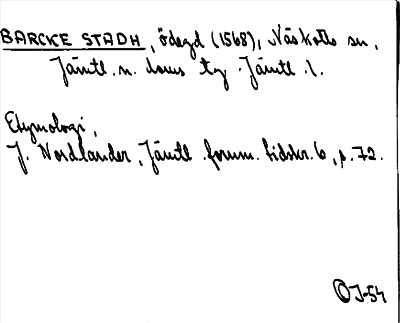 BARCKE STADH, ödegd (1568), Näskotts sn,
Jämtl. n. doms tg. Jämtl. l.
Etymologi,
J. Nordlander, Jämtl. fornm. tidskr. 6, s. 72.
OJ-54